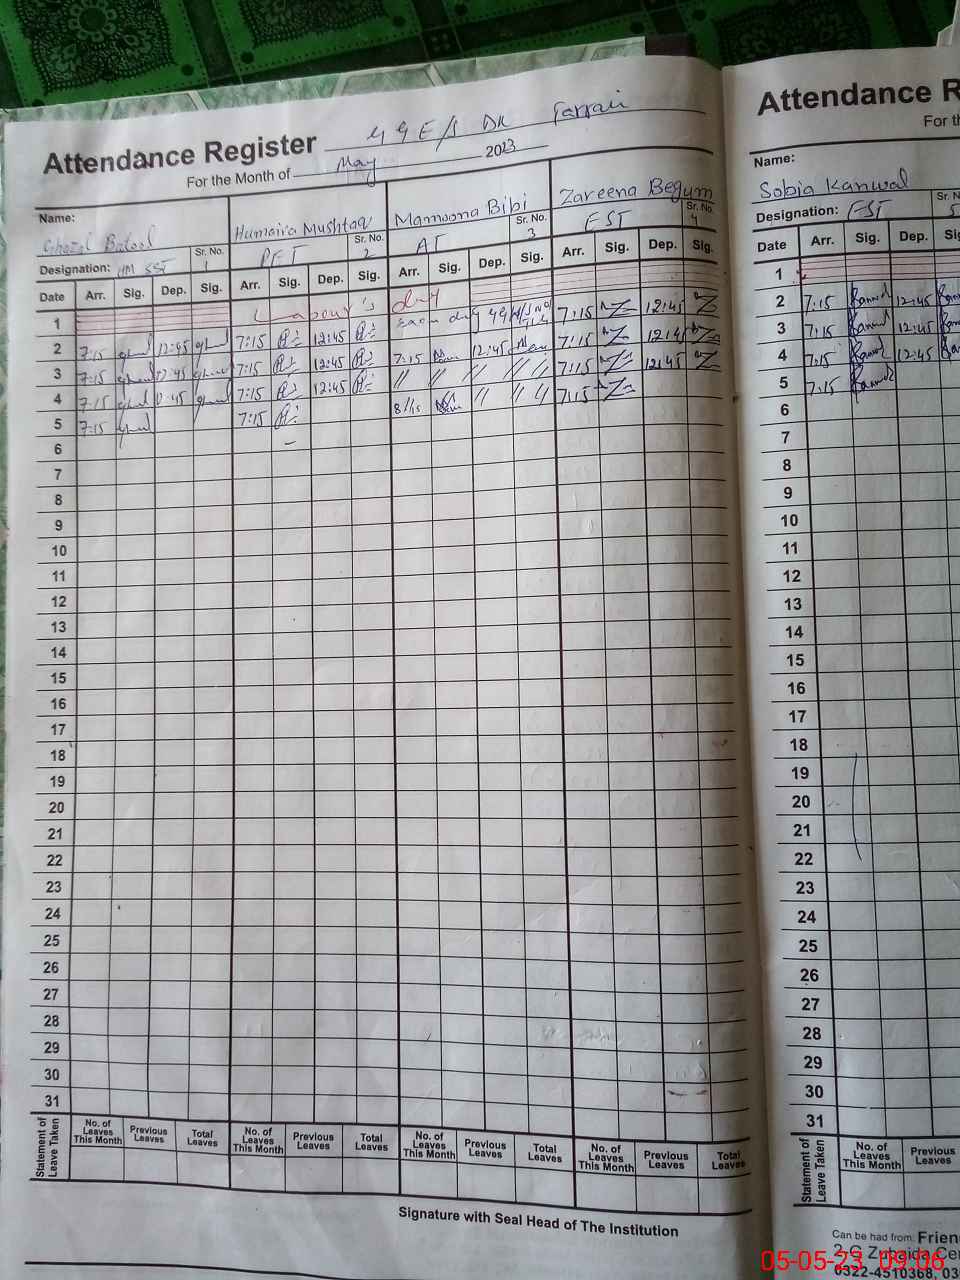 Attendance Register GGE/S DK Farrari
For the Month of May 2023
Name: Ghazal Batool Humaira Mushtaq Mamoona Bibi Zareena Begum
Designation: HM SST Sr. No. 1 PET Sr. No. 2 AT Sr. No. 3 EST Sr. No. 4
Date Arr. Sig. Dep. Sig. Arr. Sig. Dep. Sig. Arr. Sig. Dep. Sig. Arr. Sig. Dep. Sig.
1 Labour's day
2 7:15 12:45 7:15 12:45 7:15 12:45
3 7:15 12:45 7:15 12:45 7:15 12:45 7:15 12:45
4 7:15 12:45 7:15 12:45 // // // // 7:15 12:45
5 7:15 7:15 // 7:15
6
7
8
9
10
11
12
13
14
15
16
17
18
19
20
21
22
23
24
25
26
27
28
29
30
31
Statement of Leave Taken
No. of Leaves This Month Previous Leaves Total Leaves No. of Leaves This Month Previous Leaves Total Leaves No. of Leaves This Month Previous Leaves Total Leaves No. of Leaves This Month Previous Leaves Total Leaves
Signature with Seal Head of The Institution
Attendance R
For th
Name:
Sobia Kanwal
Designation: EST Sr. N 5
Date Arr. Sig. Dep. Si
1
2 7:15 Kanwal 12:45
3 7:15 Kanwal 12:45
4 7:15 Kanwal 12:45
5 7:15 Kanwal
6
7
8
9
10
11
12
13
14
15
16
17
18
19
20
21
22
23
24
25
26
27
28
29
30
31
Statement of Leave Taken
No. of Leaves This Month Previous Leaves
Can be had from: Frien
2-G Zubaida Cen
0322-4510368, 03
05-05-23 09:06